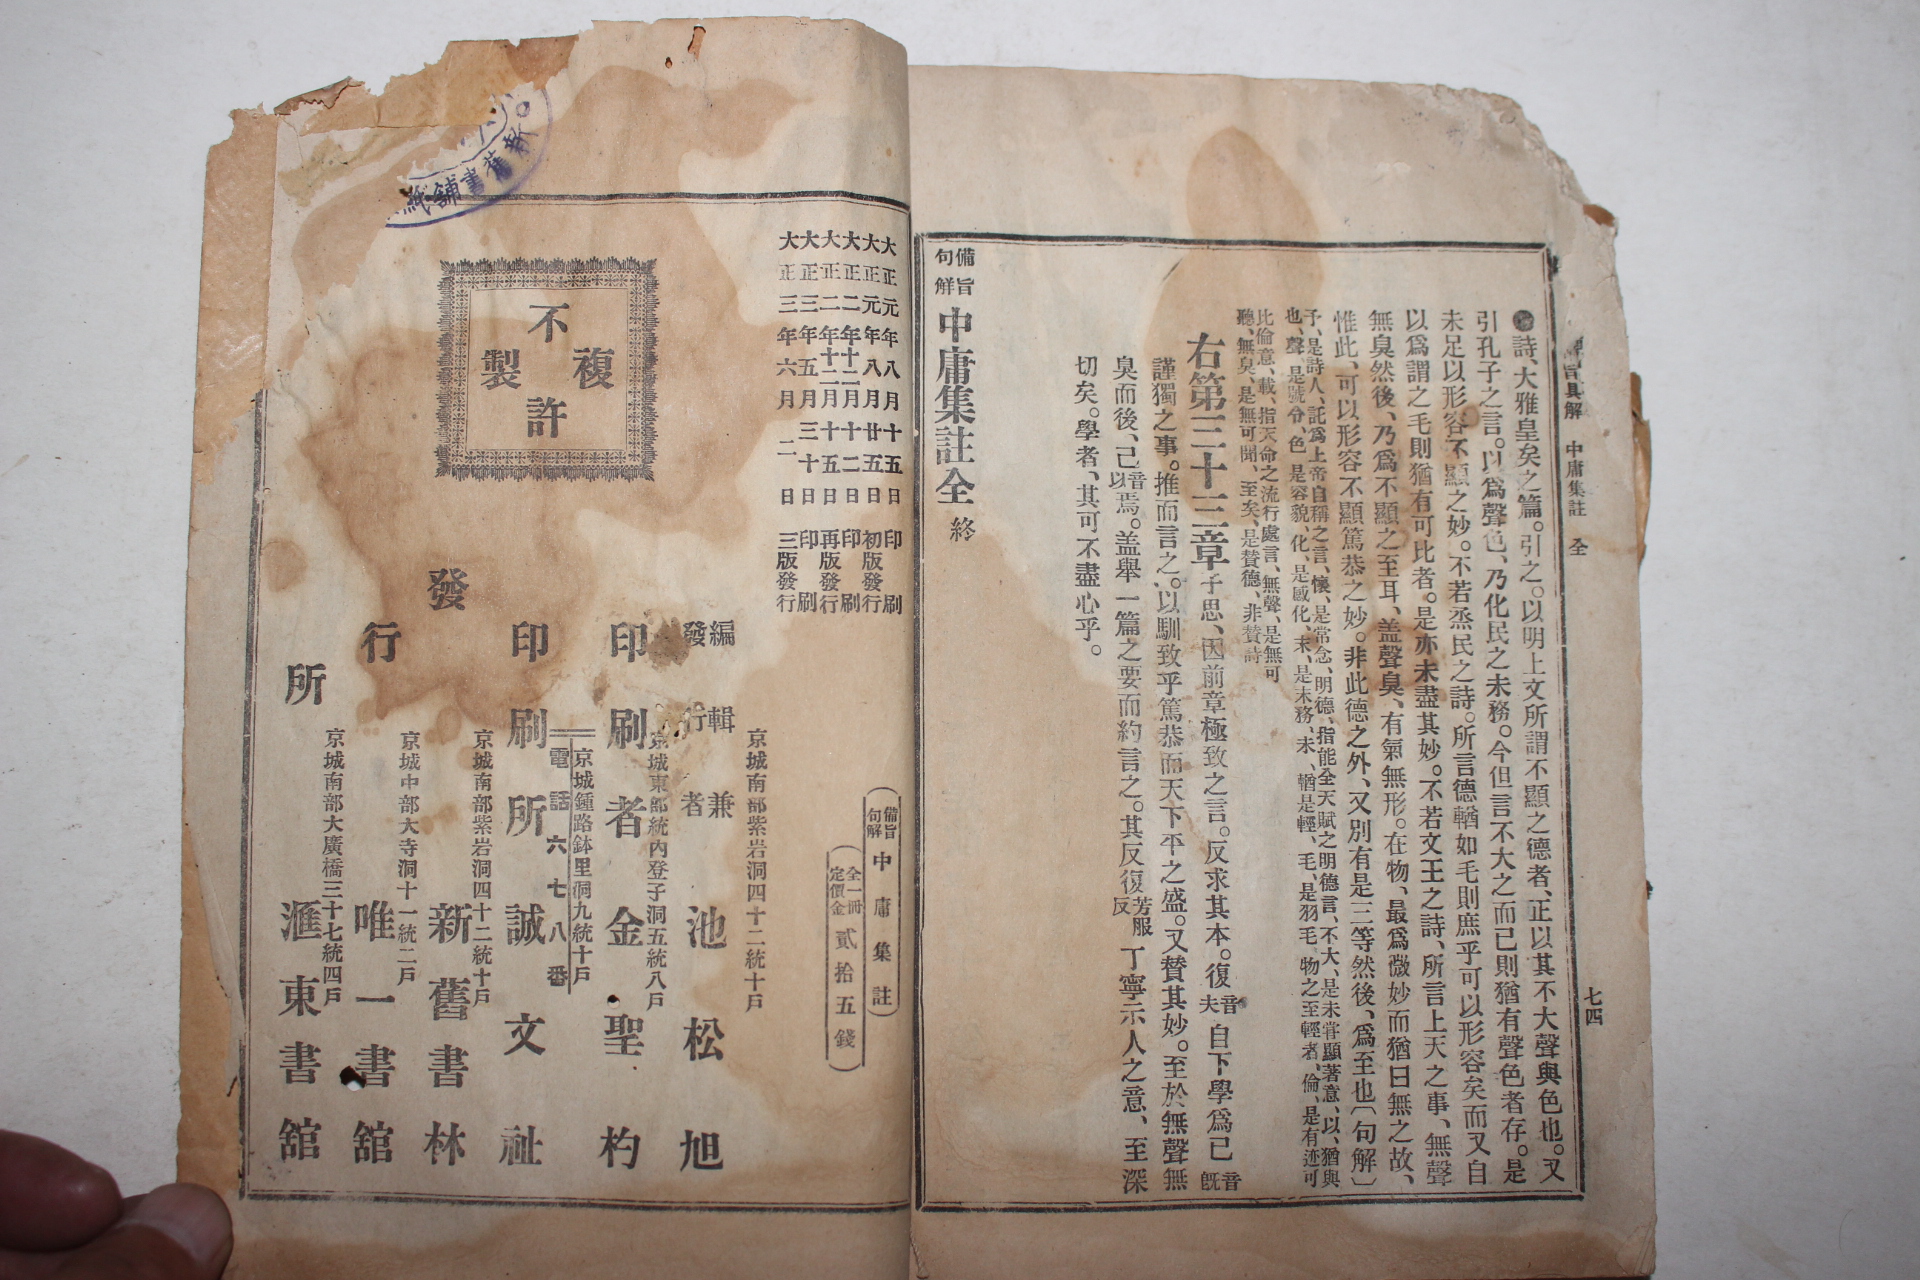 備旨具解 中庸集註 全
七四
詩、大雅皇矣之篇。引之。以明上文所謂不顯之德者、正以其不大聲與色也。又
引孔子之言。以爲聲色、乃化民之末務。今但言不大之而已則猶有聲色者存。是
未足以形容不顯之妙。不若烝民之詩。所言德輶如毛則庶乎可以形容矣而又自
以爲謂之毛則猶有可比者。是亦未盡其妙。不若文王之詩、所言上天之事、無聲
無臭然後、乃爲不顯之至耳、盖聲臭、有氣無形。在物、最爲微妙而猶曰無之故、
惟此、可以形容不顯篤恭之妙。非此德之外、又別有是三等然後、爲至也〔句解〕
予、是詩人、託爲上帝自稱之言、懷、是常念、明德、指能全天賦之明德言、不大、是未甞顯著意、以、猶與
也、聲、是號令、色、是容貌、化、是感化、末、是末務、末、輶是輕、毛、是羽毛、物之至輕者、倫、是有迹可
比倫意、載、指天命之流行處言、無聲、是無可
聽、無臭、是無可聞、至矣、是賛德、非賛詩
右第三十三章子思、因前章極致之言。反求其本。復音夫自下學爲己
謹獨之事。推而言之。以馴致乎篤恭而天下平之盛。又賛其妙。至於無聲無
臭而後、已音以焉。盖舉一篇之要而約言之。其反復芳服反丁寧示人之意、至深
切矣。學者、其可不盡心乎。
備旨句解 中庸集註全 終
大正元年八月十五日 印刷
大正元年八月廿五日 初版發行
大正二年十二月十二日 印刷
大正二年十二月十五日 再版發行
大正三年五月三十日 印刷
大正三年六月二日 三版發行
(備旨句解 中庸集註)
(全一冊 定價金 貳拾五錢)
複製不許
京城南部紫岩洞四十二統十戶
編輯兼發行者 池松旭
京城東部統內登子洞五統八戶
印刷者 金聖杓
京城鍾路鉢里洞九統十戶
電話六七八番
印刷所 誠文社
發行所
京城南部紫岩洞四十二統十戶
新舊書林
京城中部大寺洞十一統二戶
唯一書舘
京城南部大廣橋三十七統四戶
滙東書舘
新舊書舖紙